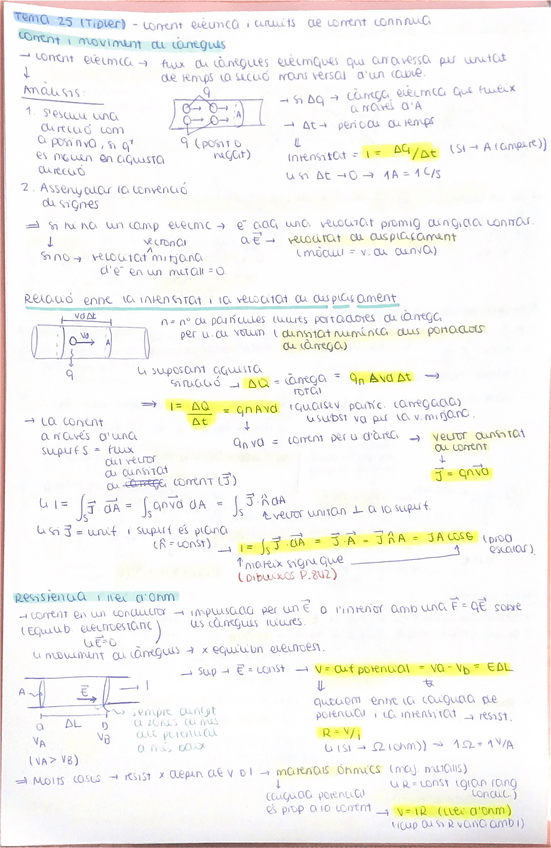 Tema 25 (Tipler) - corrent elèctrica i circuits de corrent contínua
corrent i moviment de càrregues
→ corrent elèctrica → flux de càrregues elèctriques que atravessa per unitat
de temps la secció transversal d'un cable.
Anàlisis:
1. S'escull una
direcció com
a positiva, si q⁺
es mouen en aquesta
direcció
q
A
q (positiu o
negat)
→ si ΔQ → càrrega elèctrica que flueix
a través d'A
→ Δt → període de temps
intensitat = I = ΔQ/Δt (SI → A (ampere))
si Δt → 0 → 1A = 1C/s
2. Assenyalar la convenció
de signes
⇒ si hi ha un camp elèctric → e⁻ adq una velocitat promig dirigida contrar.
a E → velocitat de desplaçament
(mòdul = v. de deriva)
si no → velocitat mitjana
vectorial
d'e⁻ en un metall = 0.
Relació entre la intensitat i la velocitat de desplaçament
vdΔt
vd
A
q
n = nº de partícules lliures portadores de càrrega
per u. de volum (densitat numèrica dels portadors
de càrrega)
suposant aquesta
situació → ΔQ = càrrega total = qn A vd Δt →
⇒ I = ΔQ/Δt = qnAvd (qualsev partíc. carregada)
subst vd per la v. mitjana.
qnvd = corrent per u d'àrea → vector densitat
de corrent
J = qnvd
→ La corrent
a través d'una
superf S = flux
del vector
de densitat
de corrent (J)
I = ∫s J dA = ∫s qnvd dA = ∫s J · n̂ dA
vector unitari ⊥ a la superf.
si J = unif i superf és plana
(n̂ = const) → I = ∫s J · dA = J · A = J n̂ A = JA cosθ (prod
escalar)
mateix signe que
(Dibuixos P.842)
Resistència i llei d'Ohm
→ corrent en un conductor → impulsada per un E a l'interior amb una F = qE sobre
les càrregues lliures.
(Equilib electrostàtic)
E = 0
moviment de càrregues → x equilibri electrost.
A
E
I
a ΔL b
VA VB
(VA > VB)
sempre dirigit
a zones de més
alt potencial
a més baix
→ sup → E = const → V = dif potencial = Va - Vb = EΔL
quocient entre la caiguda de
potencial i la intensitat → resist.
R = V/I
(SI → Ω (ohm)) → 1Ω = 1V/A
⇒ Molts casos → resist x depèn de V o I → materials òhmics (maj. metalls)
R = const (gran rang
conduc.)
(caiguda potencial
és prop a la corrent → V = IR (Llei d'Ohm)